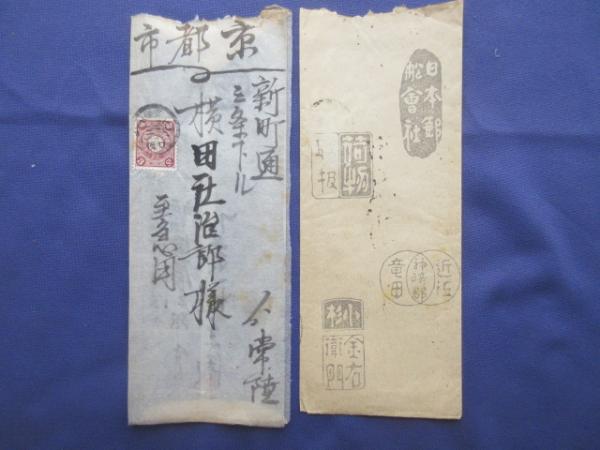 京都市
新町通
三条下ル
横田社治郎様
至急用
常陸
日本郵
舩會社
荷物
報
近江
神崎郡
竜田
小杉
金右
衛門